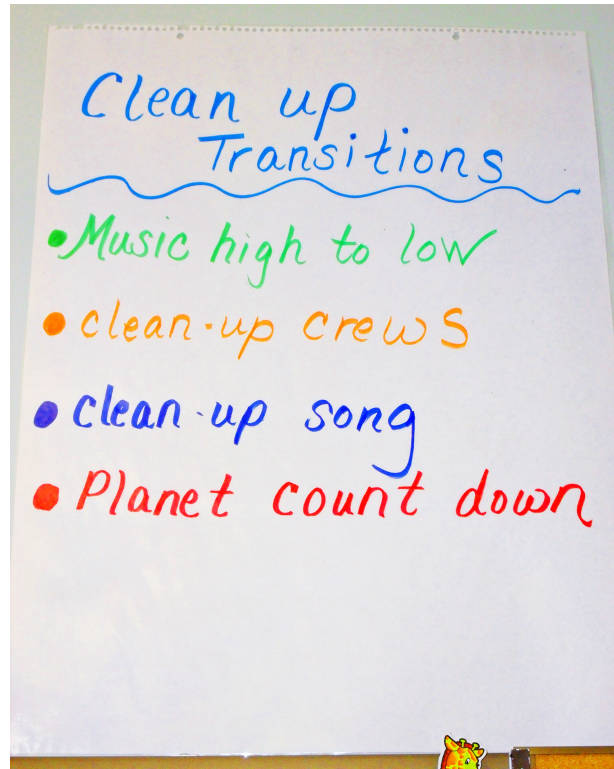 Clean up
Transitions
• Music high to low
• clean-up crews
• clean-up song
• Planet count down